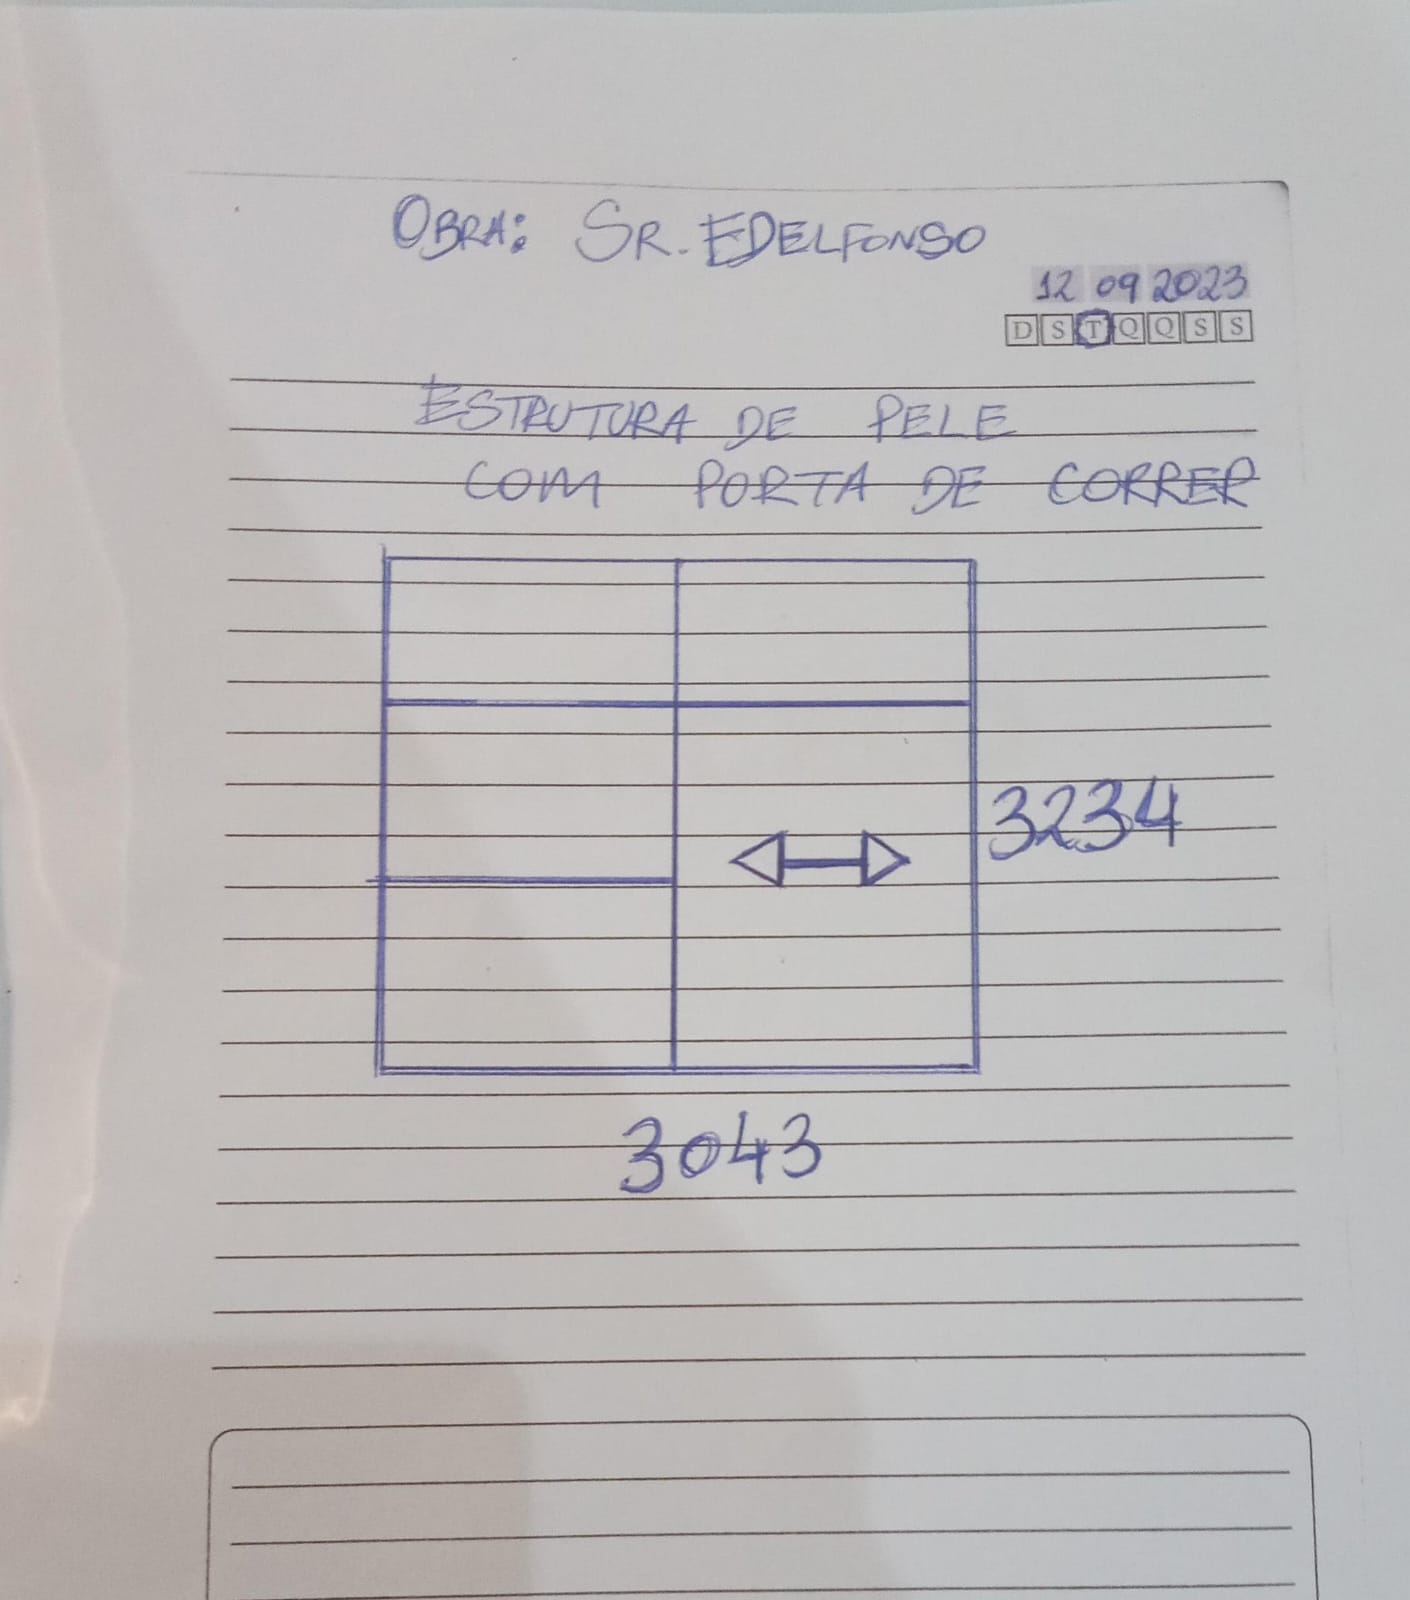 OBRA: SR. EDELFONSO
12 09 2023
D S T Q Q S S
ESTRUTURA DE PELE
COM PORTA DE CORRER
3234
3043